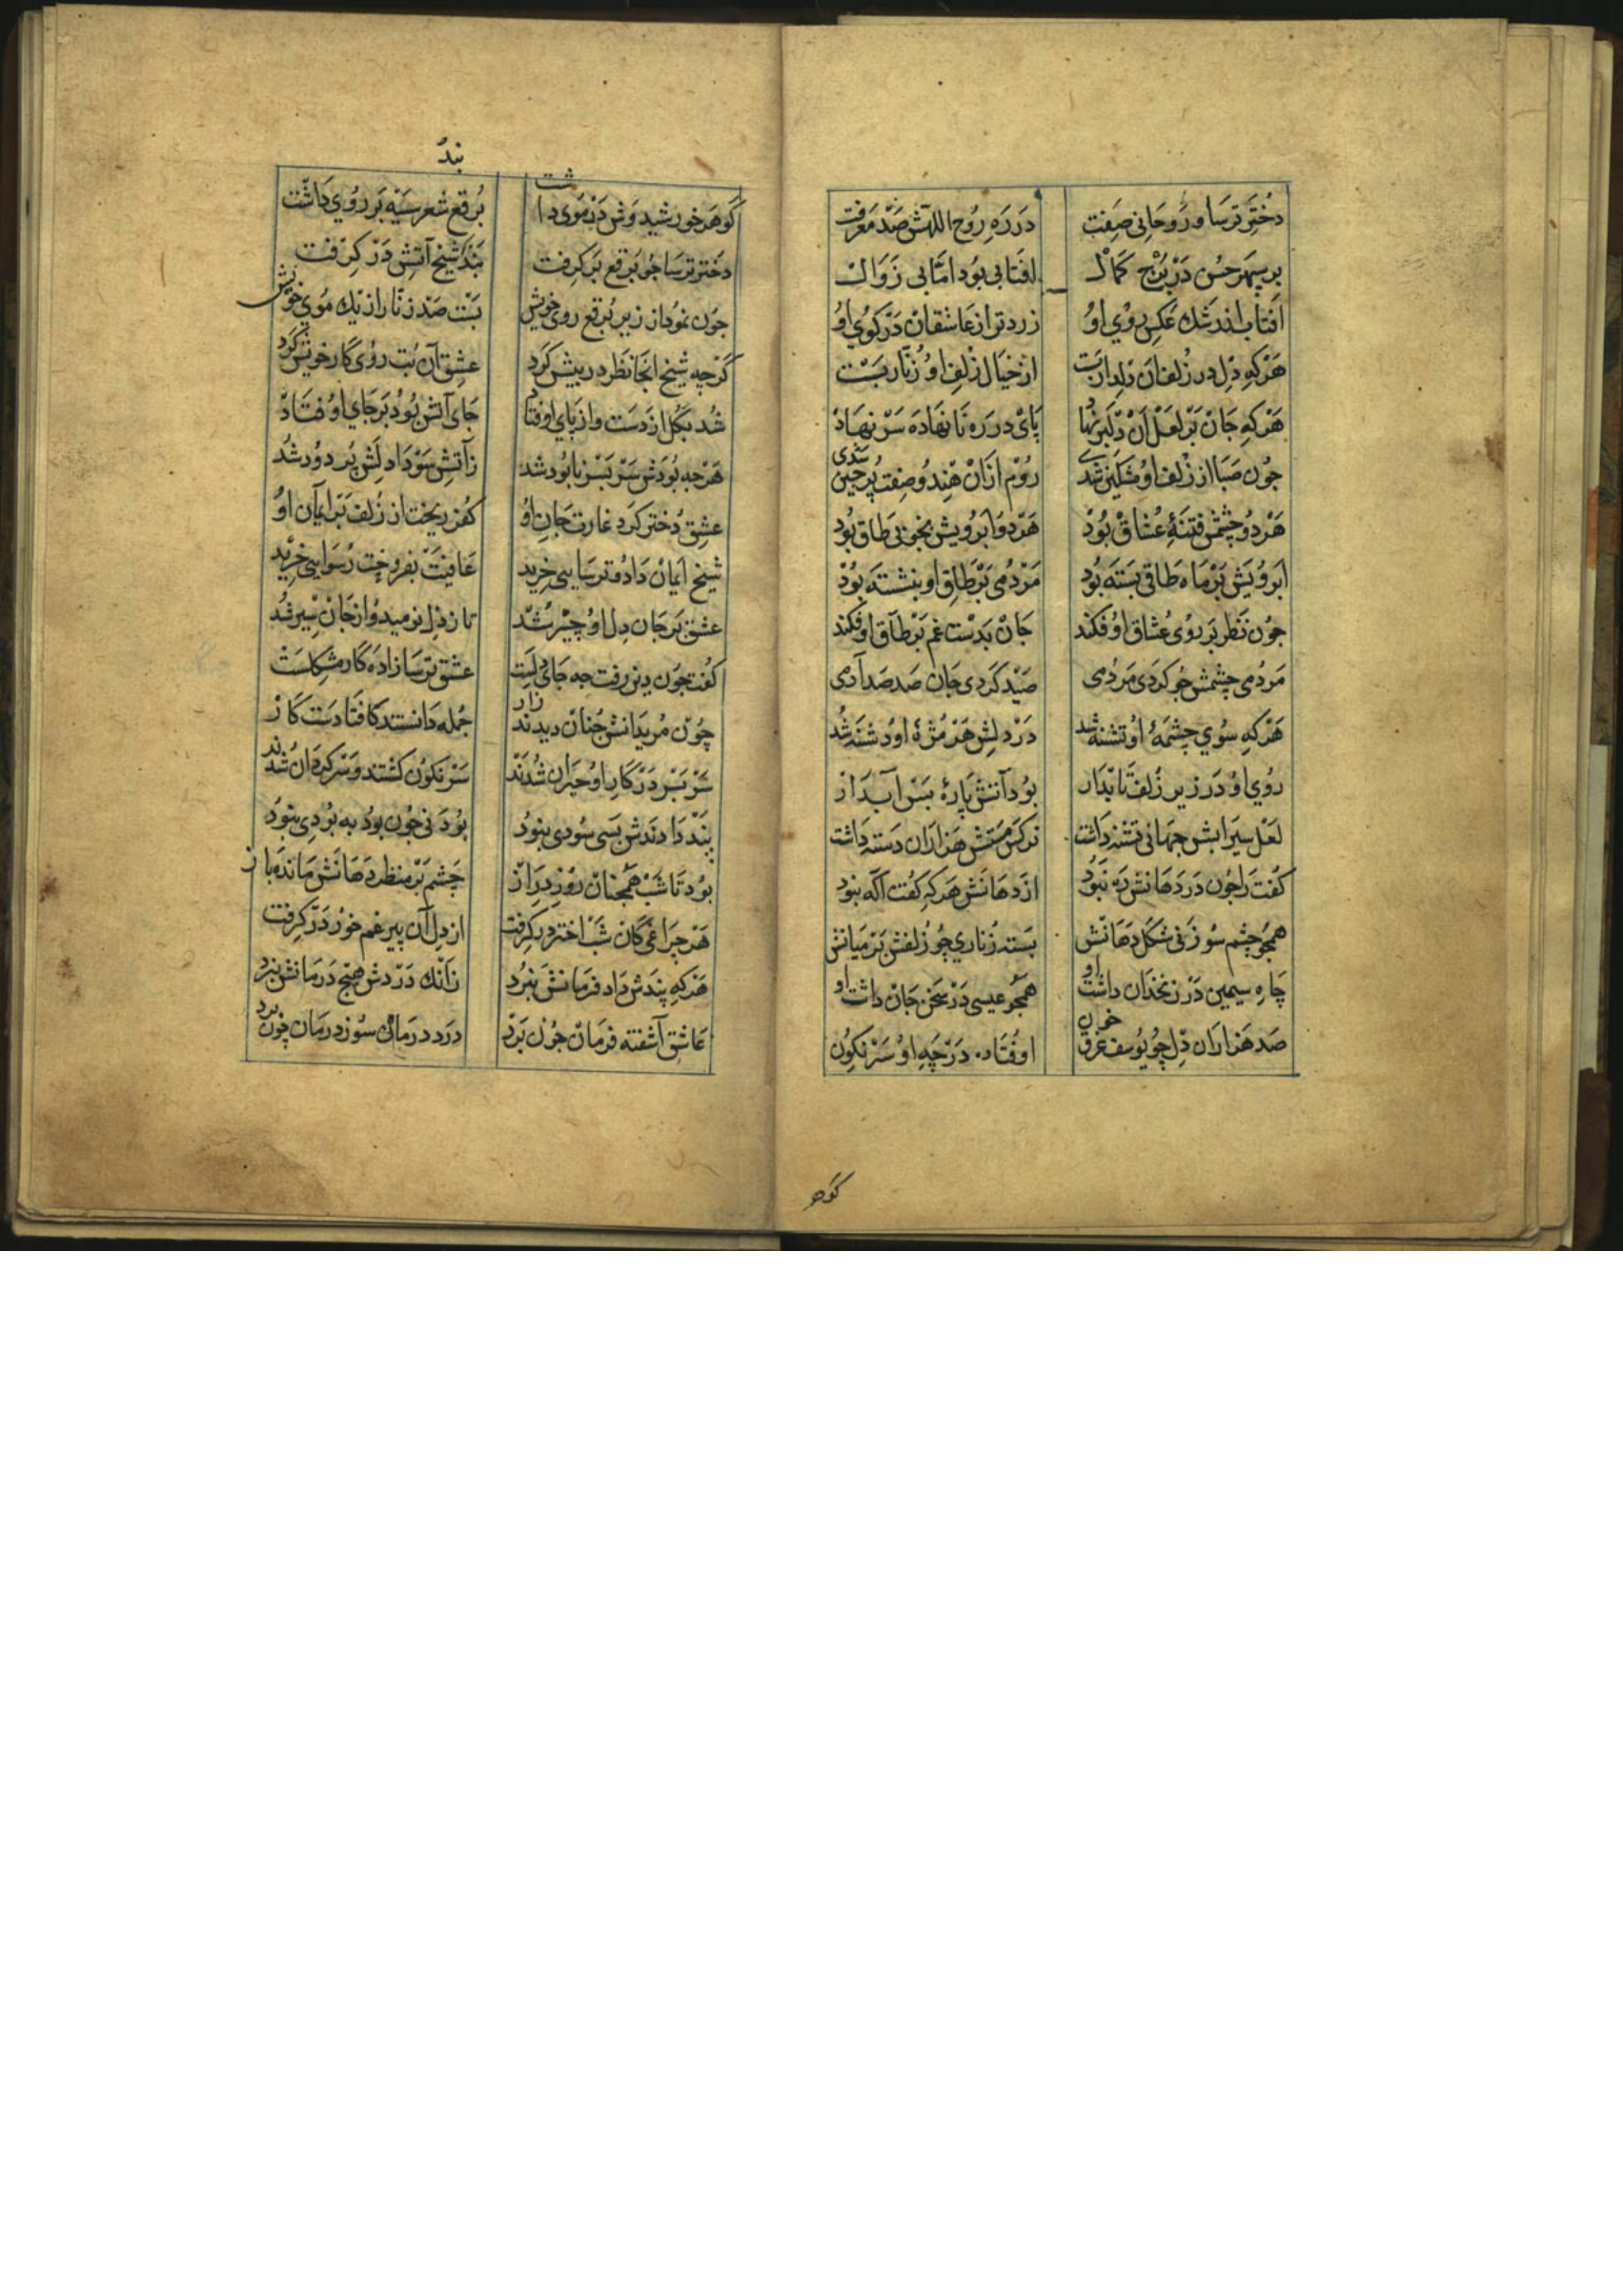 دختر ترسا و روحانی صفت
در ره روح اللهش صد معرفت
بر سپهر حسن در برج کمال
افتابی بود اما بی زوال
افتاب از رشک عکس روی او
زردتر از عاشقان در کوی او
هرکه دل در زلف ان دلدار بست
از خیال زلف او زنار بست
هرکه جان بر لعل ان دلبر نهاد
پای در ره نا نهاده سر نهاد
جون صبا از زلف او مشکین شدی
روم ازان هندو صفت پرچین شدی
هر دو چشمش فتنهٔ عشاق بود
هر دو ابرویش بخوبی طاق بود
ابرویش بر ماه طاقی بسته بود
مردمی بر طاق او بنشسته بود
جون نظر بر روی عشاق اوفکند
جان بدست غم بر طاق اوفکند
مردمی چشمش جو کردی مردمی
صید کردی جان صد صد آدمی
هرکه سوی چشمهٔ او تشنه شد
در دلش هر مژهٔ او دشنه شد
روی او در زیر زلف تابدار
بود آتش پارهٔ بس آبدار
لعل سیرابش جهانی تشنه داشت
نرکس مستش هزاران دسته داشت
کفت را جون در دهانش ره نبود
از دهانش هرکه کفت آکه نبود
همجو چشم سوزنی شکل دهانش
بسته زناری چو زلفش بر میانش
چاه سیمین در زنخدان داشت او
همجو عیسی در سخن جان داشت او
صد هزاران دل چو یوسف غرق خون
اوفتاده در چه او سرنکون
کوهر
کوهر خورشید وش در موی داشت
برقع شعر سیه بر روی داشت
دختر ترسا جو برقع بر کرفت
بند بند شیخ آتش در کرفت
جون نمود از زیر برقع روی خویش
بست صد زنار از یک موی خویش
کرچه شیخ انجا نظر در پیش کرد
عشق آن بت روی کار خویش کرد
شد بکل از دست و از پای اوفتاد
جای آتش بود بر جای اوفتاد
هرجه بودش سر بسر نابود شد
زآتش سودا دلش پر دود شد
عشق دختر کرد غارت جان او
کفر ریخت از زلف بر ایمان او
شیخ ایمان داد و ترسایی خرید
عافیت بفروخت رسوایی خرید
عشق بر جان و دل او چیر شد
تا ز دل نومید و از جان سیر شد
کفت جون دین رفت جه جای دلست
عشق ترسازاده کار مشکلست
چون مریدانش جنان دیدند زار
جمله دانستند کافتادست کار
سر بسر در کار او حیران شدند
سرنکون کشتند و سرکردان شدند
پند دادندش بسی سودی نبود
بودنی جون بود به بودی نبود
بود تا شب همچنان روز دراز
چشم بر منظر دهانش مانده باز
هر چراغی کان شب اختر در کرفت
از دل آن پیر غم خور در کرفت
هرکه پندش داد فرمانش نبرد
زآنک دردش هیج درمانش نبرد
عاشق آشفته فرمان جون برد
درد درمان سوز درمان چون برد